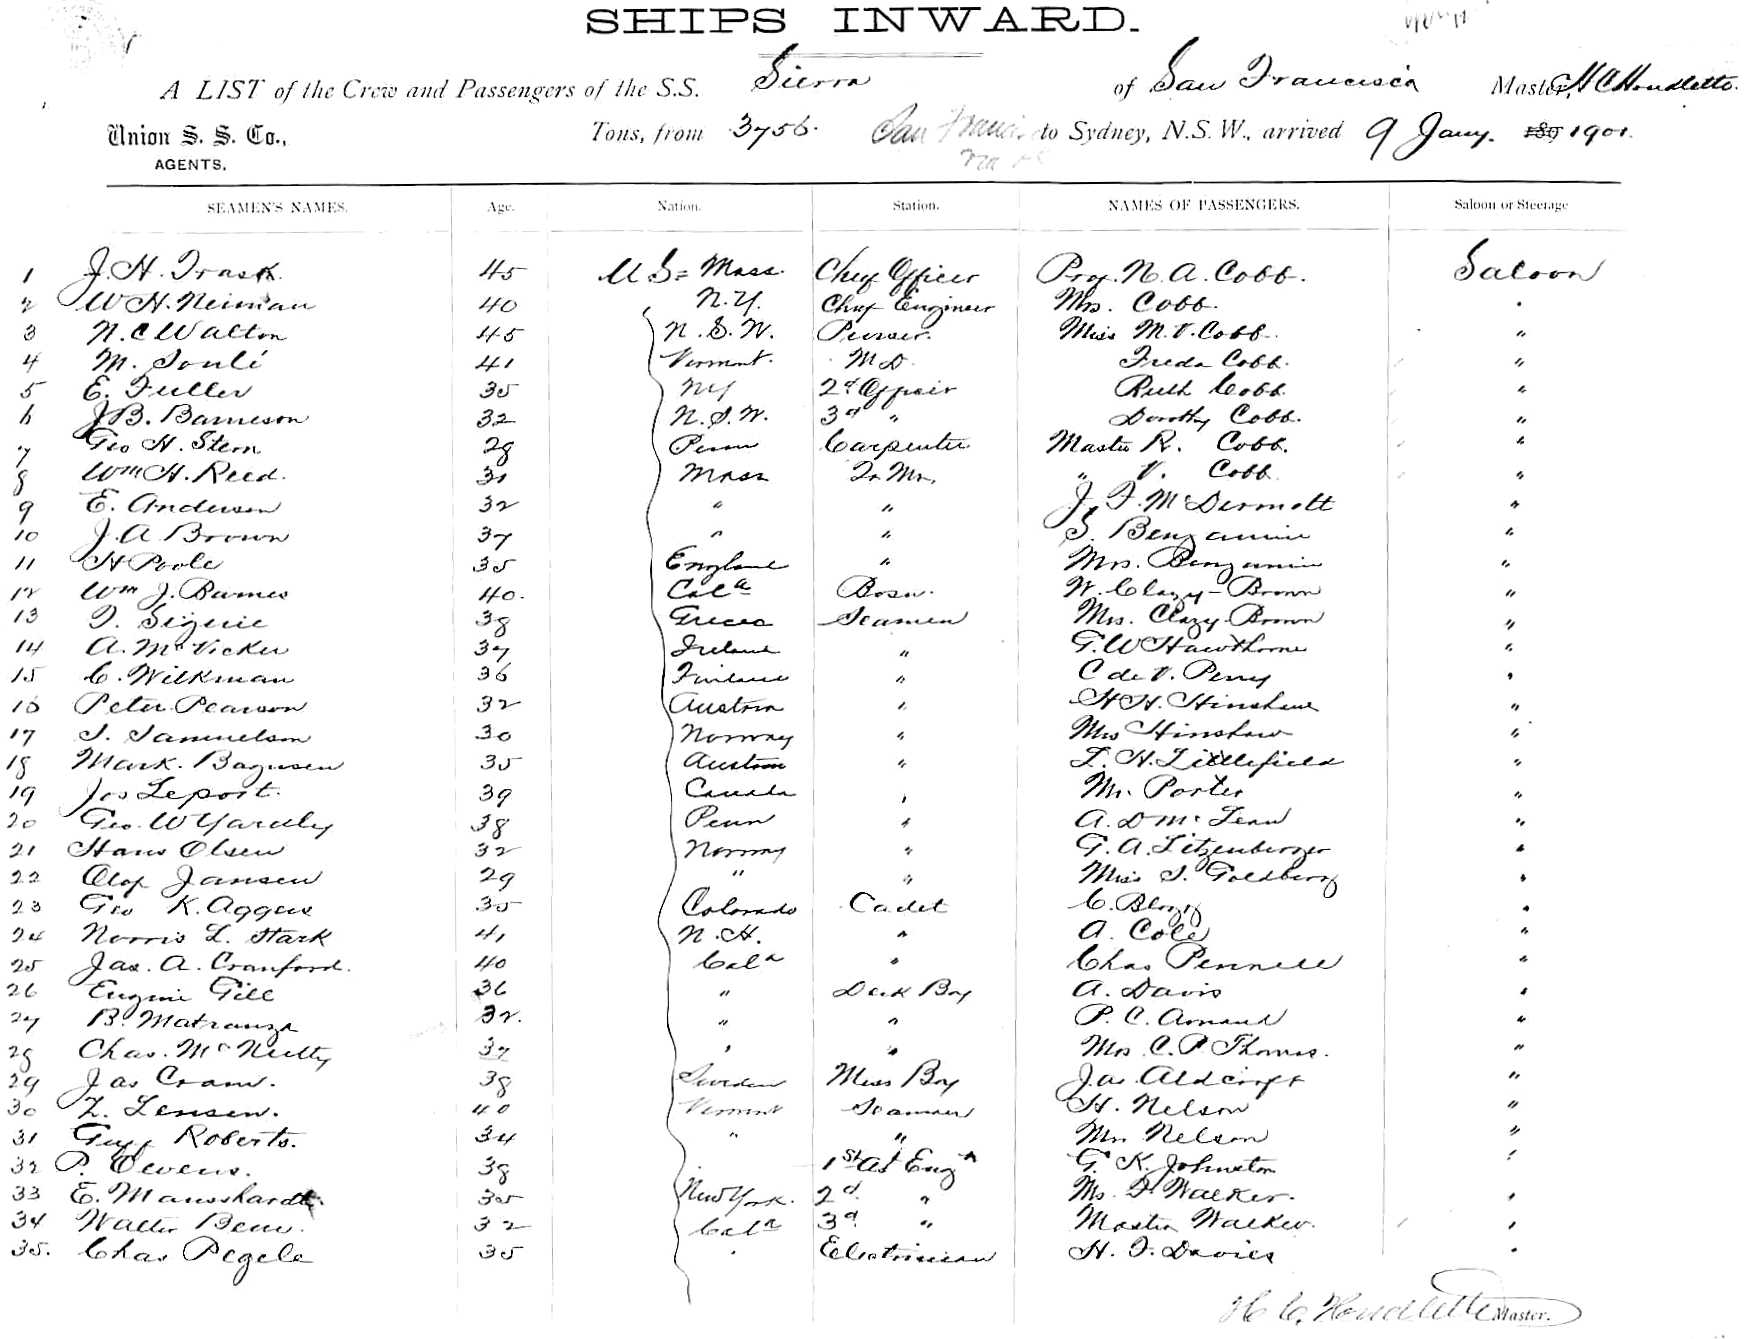 SHIPS INWARD.
A LIST of the Crew and Passengers of the S.S. Sierra of San Francisco Master, H C Houdlette.
Union S. S. Co., Tons, from 3756. San Francis to Sydney, N.S.W., arrived 9 Jany. 189 1901.
AGENTS.
SEAMEN'S NAMES. Age. Nation. Station. NAMES OF PASSENGERS. Saloon or Steerage
1 J. H. Trask. 45 U S = Mass. Chief Officer Prof. N. A. Cobb. Saloon
2 W H. Neiman 40 N.Y. Chief Engineer Mrs. Cobb. "
3 N. C Walton 45 N.S.W. Purser. Miss M. V. Cobb. "
4 M. Soulé 41 Vermont. M D. Freda Cobb. "
5 E. Fuller 35 NY 2d Officer Ruth Cobb. "
6 J B. Barneson 32 N.S.W. 3d " Dorothy Cobb. "
7 Geo H. Stern 28 Penn Carpenter Master R. Cobb. "
8 Wm H. Reed. 31 Mass Qr Mr. " V. Cobb "
9 E. Anderson 32 " " J. F. McDermott "
10 J. A Brown 37 " " S. Benjamin "
11 H Poole 35 England " Mrs. Benjamin "
12 Wm J. Barnes 40. Cala Bosn. W. Clazy-Brown "
13 38 Greece Seamen Mrs. Clazy-Brown "
14 A. McVicker 37 Ireland " G. W Hawthorne "
15 C. Wilkman 36 Finland " C de V. Perry "
16 Peter Pearson 32 Austria " H H. Hinshaw "
17 S. Samuelson 30 Norway " Mrs Hinshaw "
18 Mark. 35 Austria " L. H. Littlefield "
19 Jos Leport. 39 Canada " Mr. Porter "
20 Geo. W Yardley 38 Penn " A. D McLean "
21 Hans Olsen 32 Norway " G. A. Litzenberger "
22 Olof Jansen 29 " " Miss S. Goldberg "
23 Geo K. Aggers 35 Colorado Cadet C. "
24 Norris L. Stark 41 N.H. " A. Cole "
25 Jas. A. Cranford. 40 Cala " Chas Pennell "
26 Eugene Gill 36 " Deck Boy A. Davis "
27 B. Matranga 32. " " P. C. Arnaud "
28 Chas. McNulty 37 " " Mrs C. P Thomas. "
29 Jas Cram. 38 Sweden Mess Boy Jas. Aldcroft "
30 L. Jensen. 40 Vermont Seamen H. Nelson "
31 Roberts. 34 " " Mrs Nelson "
32 P. Owens. 38 1st As Engr G. K. Johnston "
33 E. Mansshardt. 35 New York. 2d. " Mrs. F Walker. "
34 Walter Benn. 32 Cala 3d. " Master Walker. "
35. Chas Pegele 35 " Electrician H. F. Davies "
H. C. Houdlette Master.